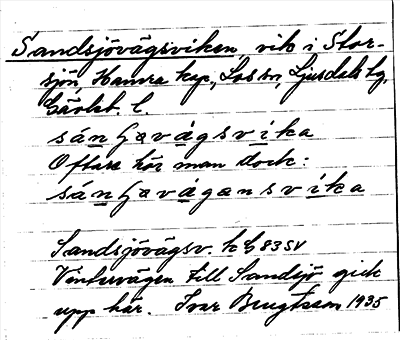 Sandsjövägsviken, vik i Stor-
sjön, Hamra kap., Los sn, Ljusdals tg,
Gävleb. l.
sánʃəvágsvika
Oftare hör man dock:
sánʃəvágənsvika
Sandsjövägsv. k G 83 SV
Vintervägen till Sandsjö gick
upp här. Ivar Bengtsson 1935